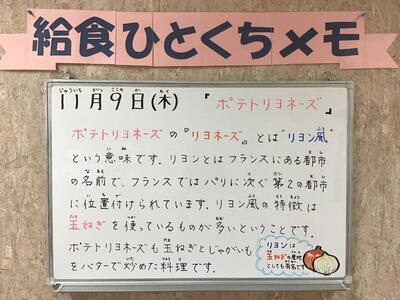 給食ひとくちメモ
11月9日(木) 『ポテトリヨネーズ』
ポテトリヨネーズの『リヨネーズ』とは"リヨン風"
という意味です。リヨンとはフランスにある都市
の名前で、フランスではパリに次ぐ第2の都市
に位置付けられています。リヨン風の特徴は
玉ねぎを使っているものが多いということです。
ポテトリヨネーズも玉ねぎとじゃがいも
をバターで炒めた料理です。
リヨンは
玉ねぎの産地
としても有名です